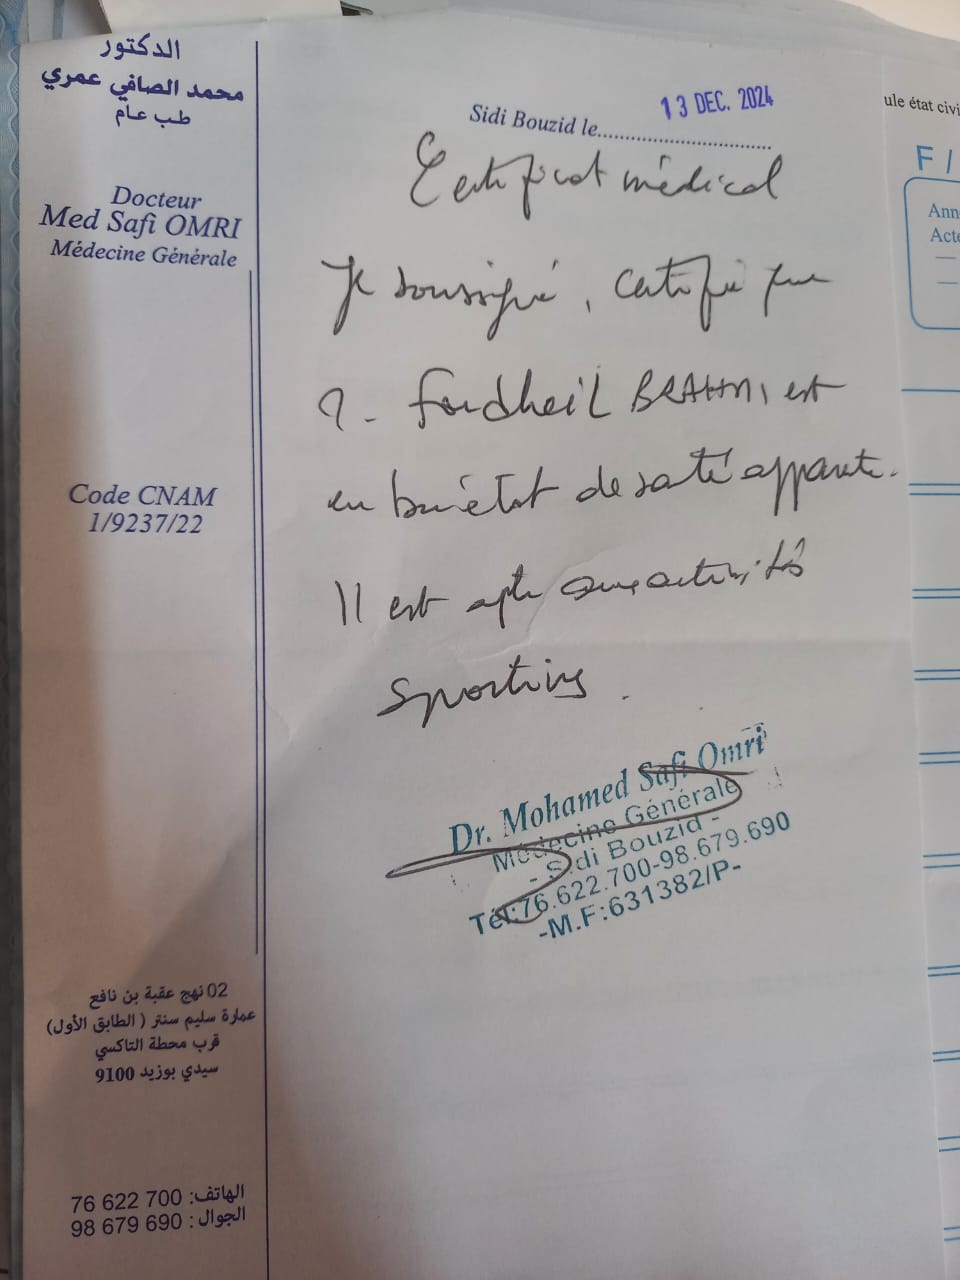 الدكتور
محمد الصافي عمري
طب عام
Docteur
Med Safi OMRI
Médecine Générale
Code CNAM
1/9237/22
02 نهج عقبة بن نافع
عمارة سليم سنتر ( الطابق الأول)
قرب محطة التاكسي
سيدي بوزيد 9100
الهاتف: 76 622 700
الجوال : 98 679 690
Sidi Bouzid le.......................... 13 DEC. 2024
Certificat médical
Je soussigné, certifie que
BRAHMI est
en bon état de santé apparente.
Il est apte aux activités
sportives.
Dr. Mohamed Safi Omri
Médecine Générale
- Sidi Bouzid -
Tél:76.622.700-98.679.690
-M.F:631382/P-
ule état civi
F /
Ann
Acte